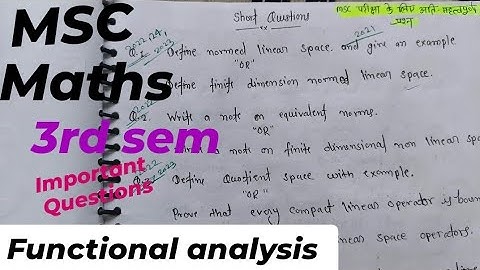 MSC
Maths
3rd sem
Important
Questions
Functional analysis
Short Questions
MSC परीक्षा के लिए अति-महत्वपूर्ण
प्रश्न
2021
Define normed linear space and give an example
"OR"
Define finite dimension normed linear space.
Write a note on equivalent norms.
"OR"
a note on finite dimensional non linear spac
Define Quotient space with example.
"OR"
Prove that every compact linear operator is boun
near space operators.